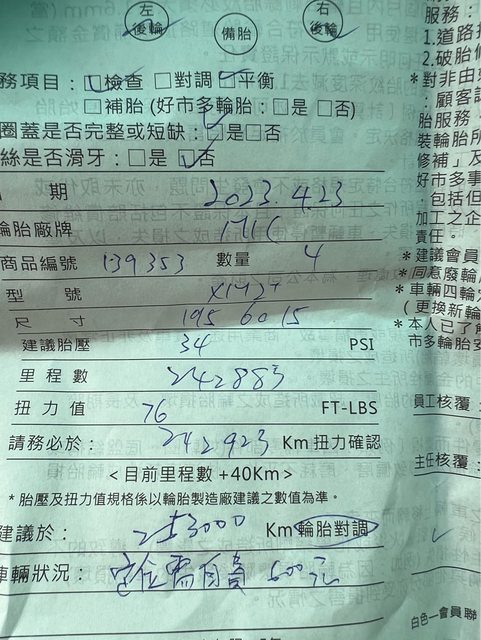 左
後輪
備胎
右
後輪
務項目：☑檢查 □對調 ☑平衡
□補胎 (好市多輪胎：□是 □否)
圈蓋是否完整或短缺：☑是□否
絲是否滑牙：□是 ☑否
期 2023.4.23
輪胎廠牌 MIC
商品編號 139353 數量 4
型 號
尺 寸 195 60 15
建議胎壓 34 PSI
里程數 242883
扭力值 76 FT-LBS
請務必於： 242923 Km 扭力確認
<目前里程數 +40Km>
* 胎壓及扭力值規格係以輪胎製造廠建議之數值為準。
建議於： 253000 Km 輪胎對調
車輛狀況： 定位需自費 600元
服務：
1.道路
2.破胎
* 對非由
：顧客
胎服務
裝輪胎所
修補」及
好市多事
．包括但
加工之企
責任。
* 建議會員
* 同意廢輪
* 車輛四輪
(更換新輪
* 本人已了
市多輪胎
員工核覆：
主任核覆：
白色一會員聯